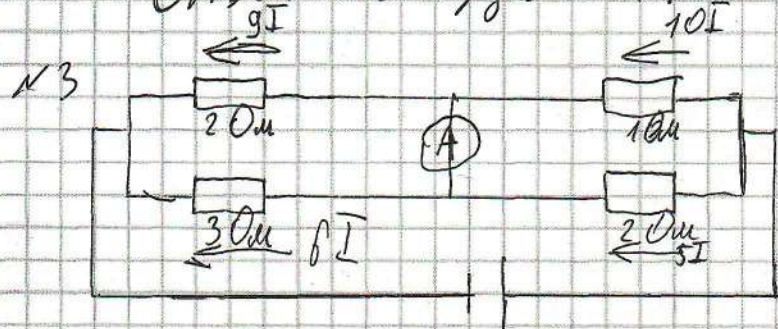 9I 10I
№3
2 Ом 1 Ом
А
3 Ом 6I 2 Ом
5I